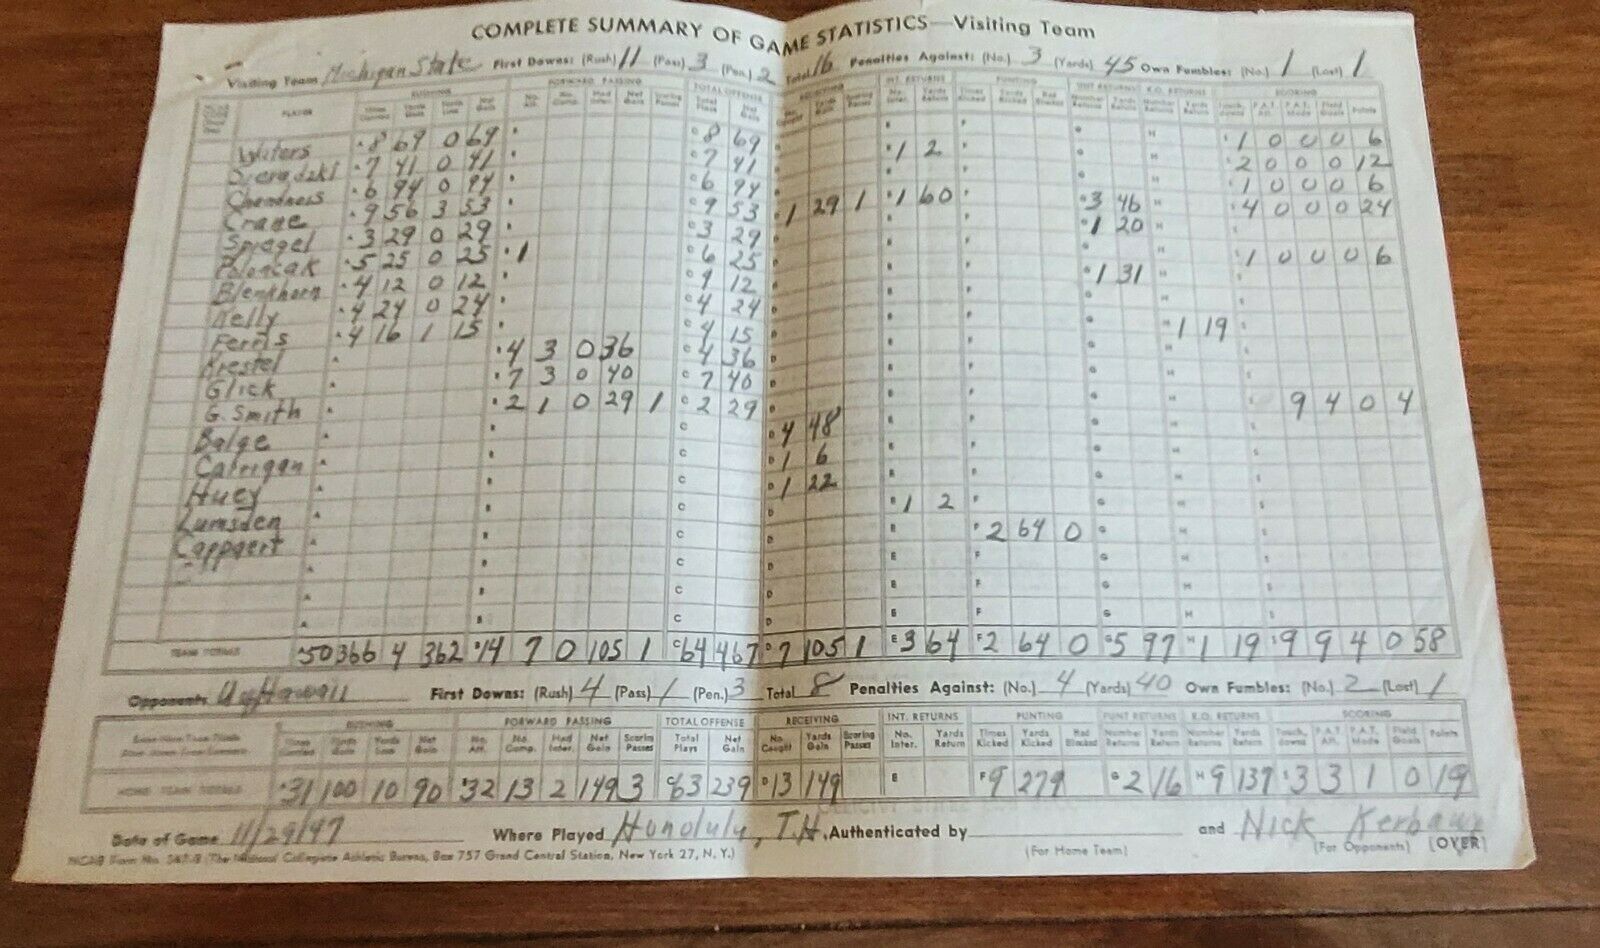 COMPLETE SUMMARY OF GAME STATISTICS—Visiting Team
Visiting Team Michigan State First Downs: (Rush) 11 (Pass) 3 (Pen.) 2 Total 16 Penalties Against: (No.) 3 (Yards) 45 Own Fumbles: (No.) 1 (Lost) 1
PLAYER RUSHING FORWARD PASSING TOTAL OFFENSE RECEIVING INT. RETURNS PUNTING PUNT RETURNS K.O. RETURNS SCORING
Waters 8 69 0 69 8 69 1 0 0 0 6
7 41 0 41 7 41 1 2 2 0 0 0 12
Chandnois 6 94 0 94 6 94 1 0 0 0 6
Crane 9 56 3 53 9 53 1 29 1 1 60 3 46 4 0 0 0 24
Spiegel 3 29 0 29 3 29 1 20
Polonchak 5 25 0 25 1 6 25 1 0 0 0 6
Blenkhorn 4 12 0 12 4 12 1 31
Kelly 4 24 0 24 4 24
Ferris 4 16 1 15 4 15 1 19
Krestel 4 3 0 36 4 36
Glick 7 3 0 40 7 40
G. Smith 2 1 0 29 1 2 29 9 4 0 4
Balge 4 48
Carrigan 1 6
Huey 1 22
Lumsden 1 2
Cappaert 2 64 0
TEAM TOTALS 50 366 4 362 14 7 0 105 1 64 467 7 105 1 3 64 2 64 0 5 97 1 19 9 9 4 0 58
Opponents U of Hawaii First Downs: (Rush) 4 (Pass) 1 (Pen.) 3 Total 8 Penalties Against: (No.) 4 (Yards) 40 Own Fumbles: (No.) 2 (Lost) 1
RUSHING FORWARD PASSING TOTAL OFFENSE RECEIVING INT. RETURNS PUNTING PUNT RETURNS K.O. RETURNS SCORING
Times Carried Yards Gain Yards Lost Net Gain No. Att. No. Comp. Had Inter. Net Gain Scoring Passes Total Plays Net Gain No. Caught Yards Gain Scoring Passes No. Inter. Yards Return Times Kicked Yards Kicked Had Blocked Number Returns Yards Return Number Returns Yards Return Touch-downs P.A.T. Att. P.A.T. Made Field Goals Points
HOME TEAM TOTALS 31 100 10 90 32 13 2 149 3 63 239 13 149 9 279 2 16 9 137 3 3 1 0 19
Date of Game 11/29/47 Where Played Honolulu, T.H. Authenticated by and Nick Kerbawy
(For Home Team) (For Opponents) (OVER)
NCAB Form No. S&T-8 (The National Collegiate Athletic Bureau, Box 757 Grand Central Station, New York 27, N. Y.)